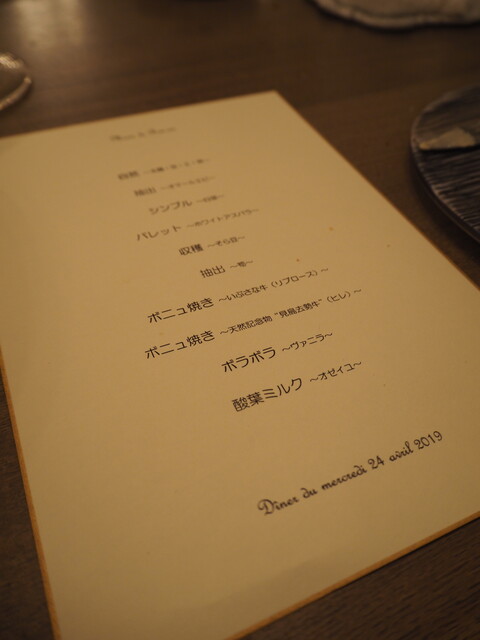 自然
抽出 ～オマールエビ～
シンプル
パレット ～ホワイトアスパラ～
収穫 ～そら豆～
抽出 ～筍～
ボニュ焼き ～いぶさな牛（リブロース）～
ボニュ焼き ～天然記念物 "見島去勢牛"（ヒレ）～
ボラボラ ～ヴァニラ～
酸葉ミルク ～オゼイユ～
Dîner du mercredi 24 avril 2019